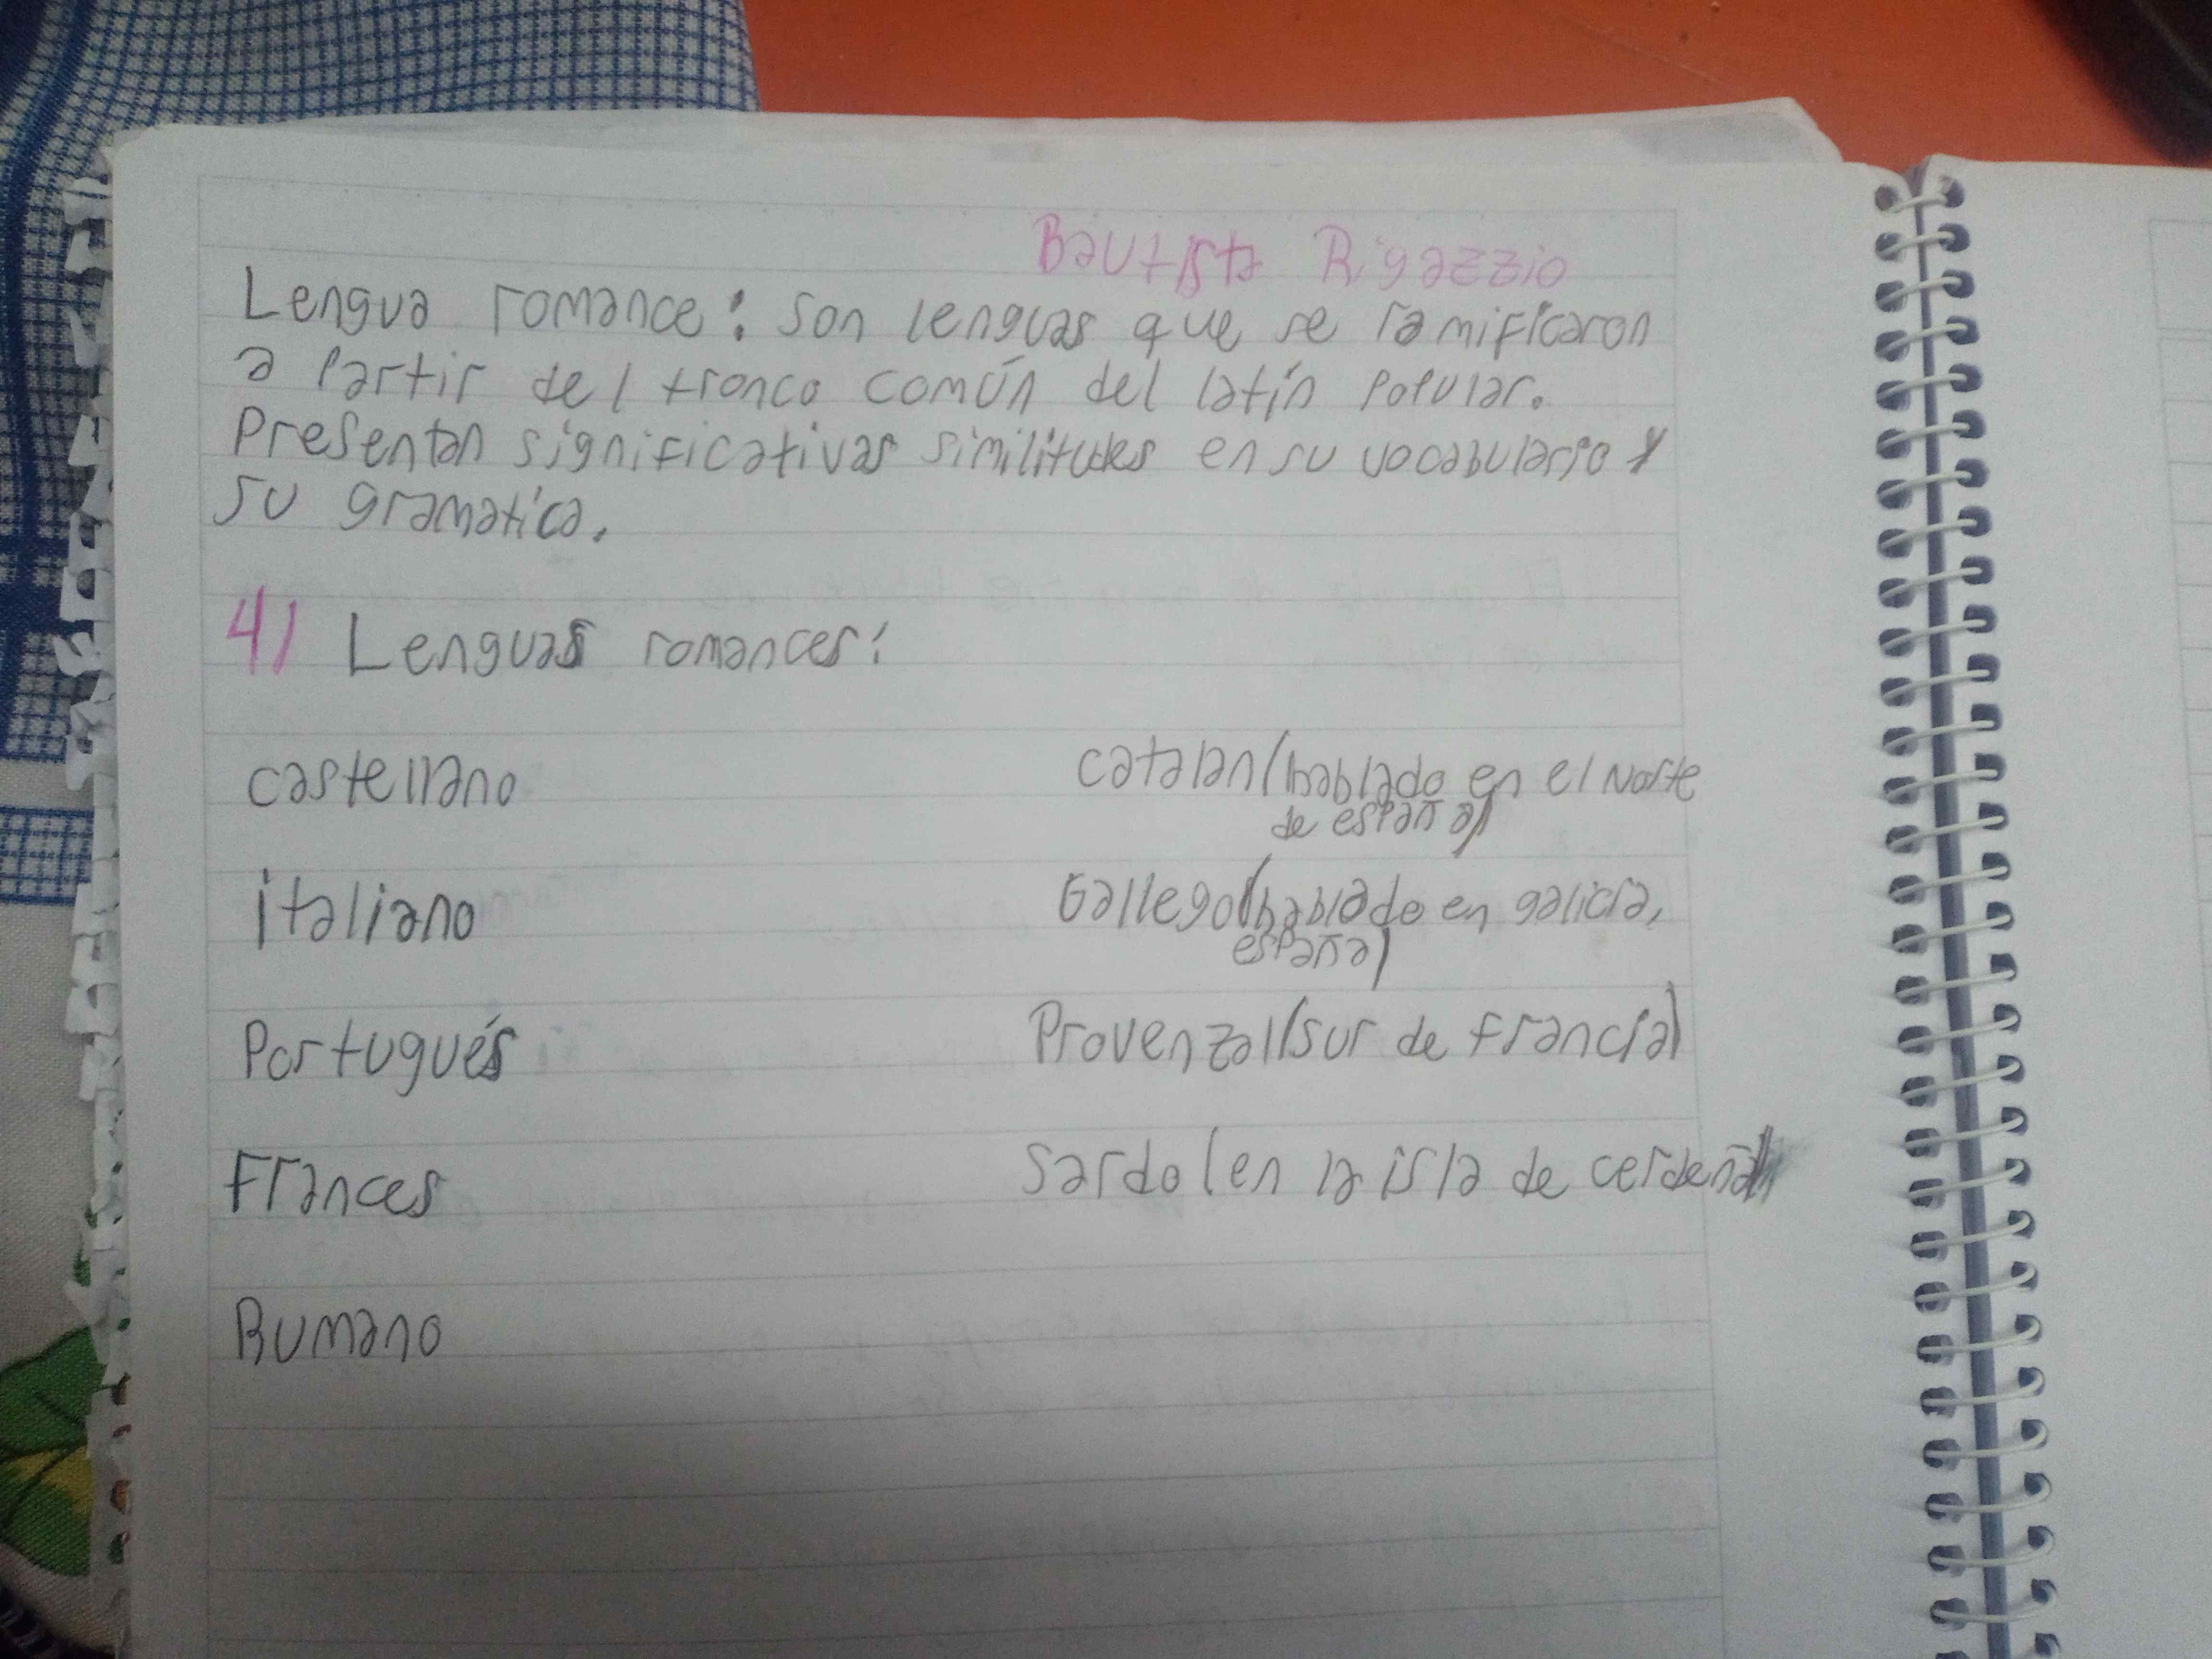 Bautista Rigazzio
Lengua romance: son lenguas que se ramificaron
a partir del tronco común del latín popular.
Presentan significativas similitudes en su vocabulario y
su gramatica.
4) Lenguas romances:
castellano
catalan (hablado en el Norte
de españa)
italiano
Gallego (hablado en galicia,
españa)
Portugués
Provenzal (sur de francia)
Frances
Sardo (en la isla de cerdeña)
Rumano